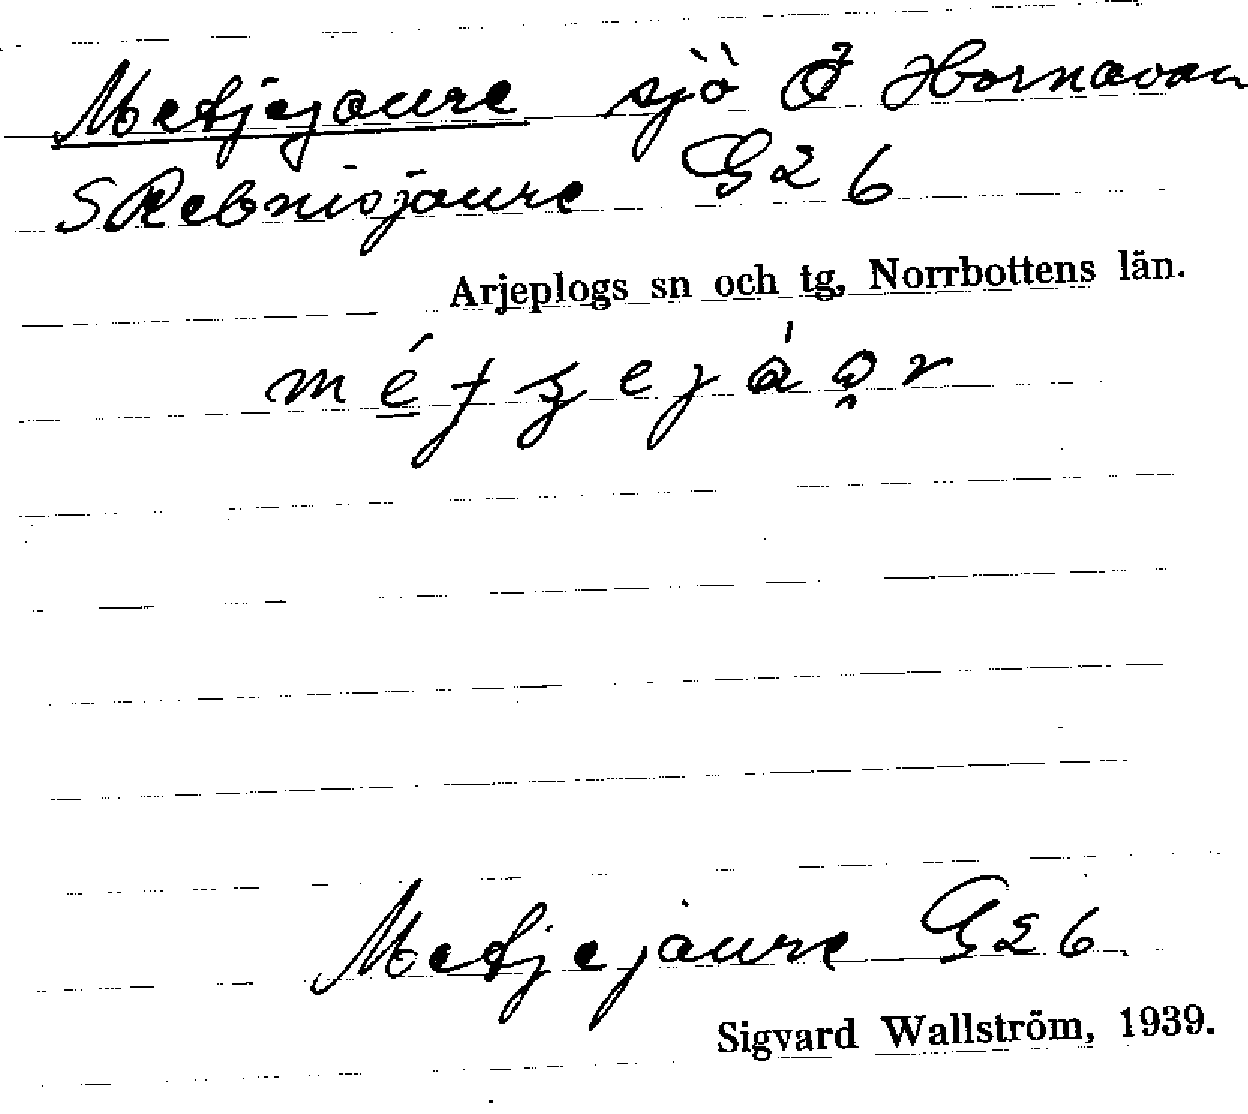 Metjejaure sjö Ö Hornavan
S Rebnisjaure G26
Arjeplogs sn och tg, Norrbottens län.
Metjejaure G26
Sigvard Wallström, 1939.